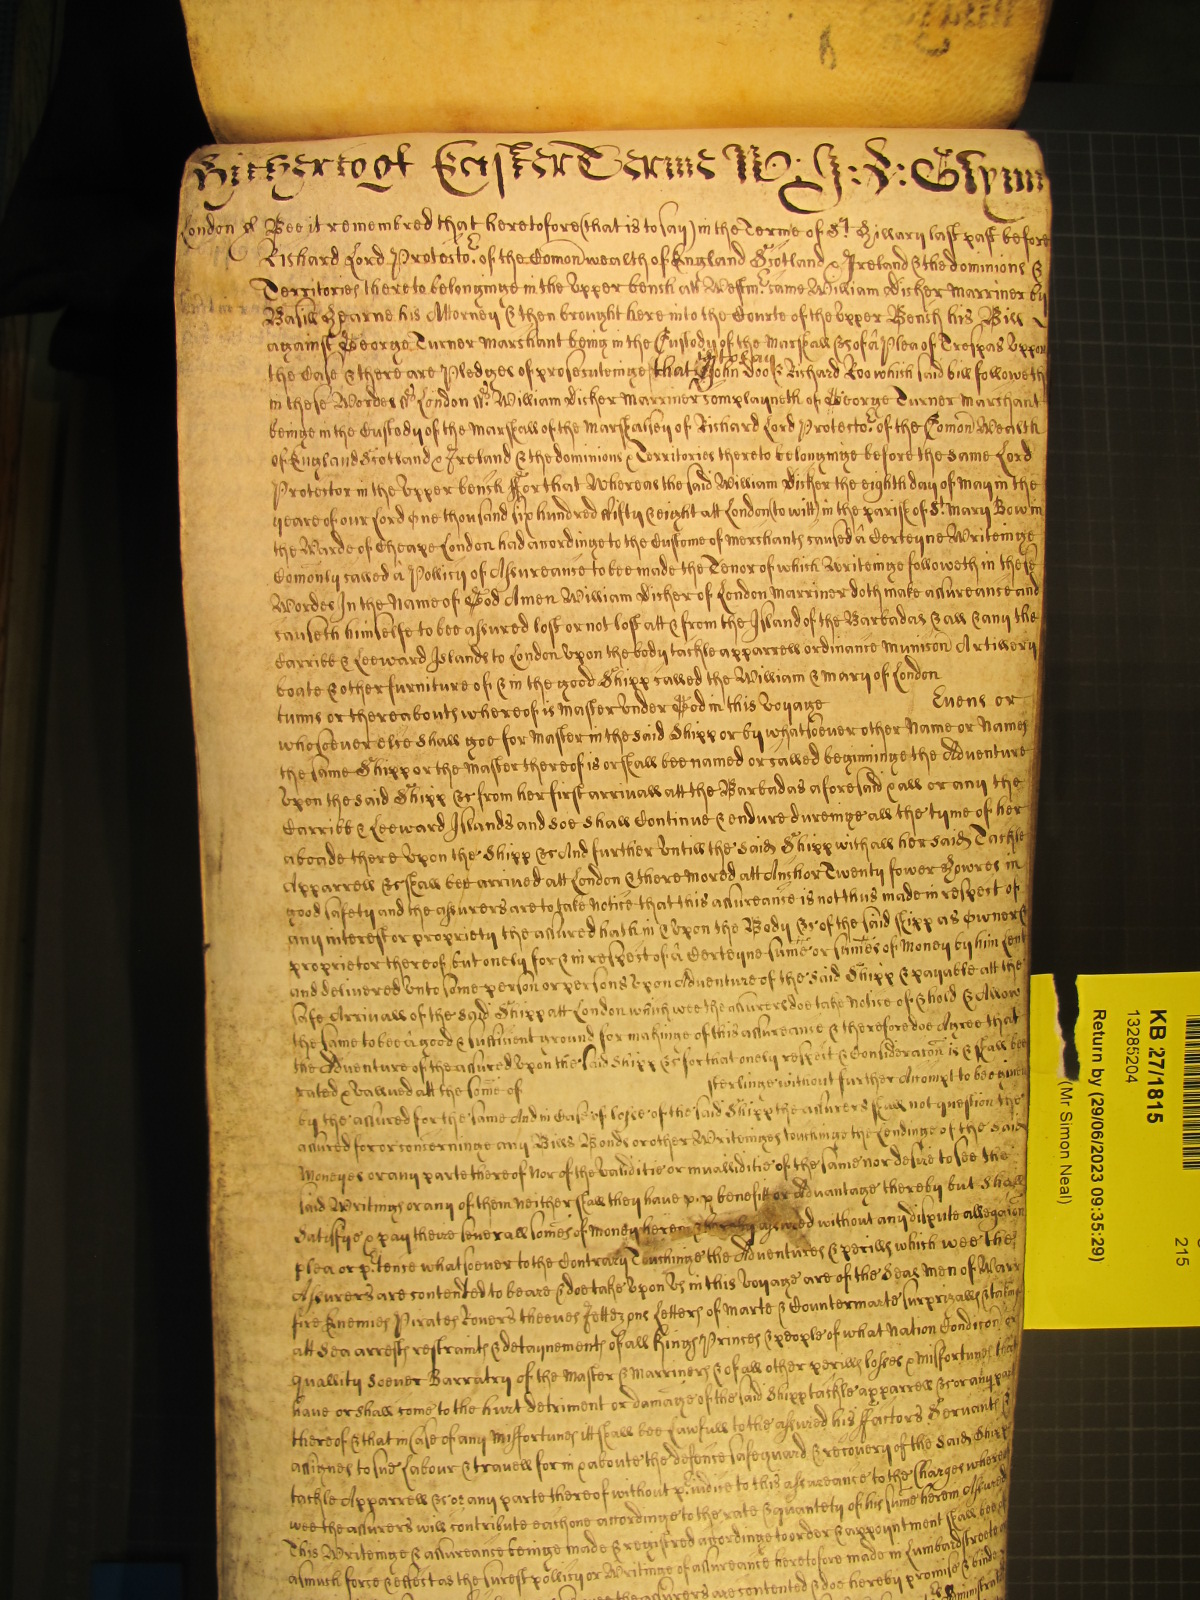 Hitherto of Easter Terme W: Y: J: Glynn
London ss Bee it remembred that heretofore (that is to say) in the Terme of St. Hillary last past before
Richard Lord Protector. of the Comonwealth of England Scotland & Ireland & the dominions &
Territories thereto belonginge in the Upper bench att Westmr. came William Disher Marriner by
Basill Hearne his Attorney & then brought here into the Courte of the Upper Bench his Bill
against George Turner Marchant being in the Custody of the Marshall &c of a Plea of Trespas Uppon
the Case & there are Pledges of prosecuteinge that is to say John Doo & Richard Roo which said bill followeth
in these Wordes ss London ss William Disher Marriner complayneth of George Turner Marchant
beinge in the Custody of the Marshall of the Marshalsey of Richard Lord Protector of the Comon Wealth
of England Scotland & Ireland & the dominions & Territories thereto belonginge before the same Lord
Protector in the Upper bench For that Whereas the said William Disher the eighth day of May in the
yeare of our Lord One thousand six hundred fifty & eight att London (to witt) in the parish of St. Mary Bow in
the Warde of Cheape London had accordinge to the Custome of Merchants caused a Certeyne Writeinge
Comonly called a Pollicy of Assureance to bee made the Tenor of which Writeinge followeth in these
Wordes In the Name of God Amen William Disher of London Marriner doth make assureance and
causeth himselfe to bee assured lost or not lost att & from the Island of the Barbadas & all & any the
Carribe & Leeward Islands to London Upon the body tackle apparrell ordinance Municon Artillery
boate & other furniture of & in the good Shipp called the William & Mary of London
tunns or thereabouts whereof is Master Under God in this Voyage Evens or
whosoever else shall goe for Master in the said Shipp or by whatsoever other Name or Names
the same Shipp or the Master thereof is or shall bee named or called beginninge the Adventure
Upon the said Shipp &c from her first arrivall att the Barbadas aforesaid & all or any the
Carribe & Leeward Islands and soe shall Continue & endure dureinge all the tyme of her
aboade there Upon the Shipp &c And further Untill the said Shipp with all her said Tackle
Apparrell &c shall bee arrived att London & there mored att Anchor Twenty fower Howres in
good safety and the assurers are to take Notice that this assureance is not thus made in respect of
any interest or propriety the assured hath in & Upon the Body &c of the said shipp as Owner &
proprietor thereof but onely for & in respect of a Certeyne sume or sumes of Money by him lent
and delivered Unto some person or persons Upon Adventure of the said Shipp & payable att the
safe Arrivall of the said Shipp att London which wee the assurers doe take Notice of & hold & Allow
the same to bee a good & sufficient ground for makinge of this assureance & therefore doe Agree that
the Adventure of the assured Upon the said Shipp &c for that onely respect & Consideracon is & shall bee
rated & vallued att the some of sterlinge without further Attempt to bee given
by the assured for the same And in Case of losse of the said Shipp the assurers shall not question the
assured for or concerninge any Bills Bonds or other Writeinges touchinge the Lendinge of the said
Moneyes or any parte thereof Nor of the validitie or invalliditie of the same nor desire to see the
said Writings or any of them neither shall they have p.p benefitt or Advantage thereby but shall
Satisfye & pay theire severall somes of Money herein & hereby assured without any dispute allegacon
plea or p.tence whatsoever to the Contrary Touchinge the Adventures & perills which wee the
Assurers are contented to beare & doe take Upon Us in this Voyage are of the Seas Men of Warr
fire Enemies Pirates Rovers theeves Jettezons Letters of Marte & Countermarte surprizalls & takings
att Sea arrests restraints & detaynements of all Kings Princes & people of what Nation Condicon or
quallity soever Barratry of the Master & Marriners & of all other perills losses & Misfortunes that
have or shall come to the hurt detriment or damage of the said Shipp tackle apparrell &c or any part
thereof & that in Case of any Misfortunes itt shall bee Lawfull to the assured his Factors Servants &
assignes to sue Labour & travell for in & aboute the defence safeguard & recovery of the said Shipp
tackle Apparrell &c or any parte thereof without p.iudice to this assureance to the Charges whereof
wee the assurers will contribute each one accordinge to the rate & quantety of his sume herein Assured
This Writeinge & assureance beinge made & registred accordinge to order & appointment shall bee of
asmuch force & effect as the surest pollicy or Writinge of assureance heretofore made in Lumbard streete
wee the assurers are contented & doe hereby promise & binde
KB 27/1815
13285204
Return by (29/06/2023 09:35:29)
(Mr Simon Neal)
215